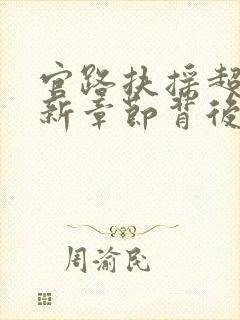 官路扶摇超
新章节背後
周渝民